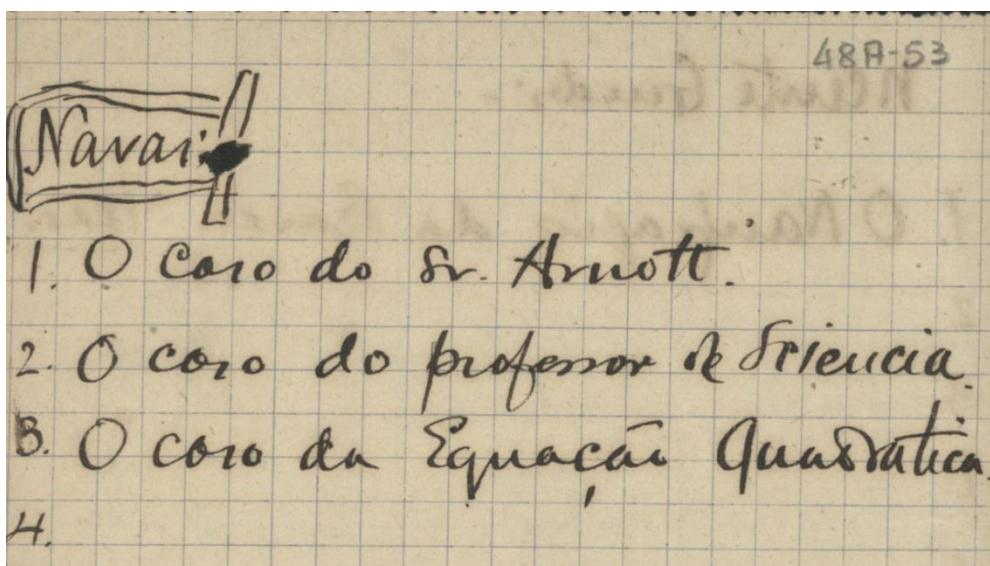 48A-53
Navas
1. O caso do Sr. Arnott.
2. O caso do professor de Sciencia.
3. O caso da Equação Quadratica.
4.